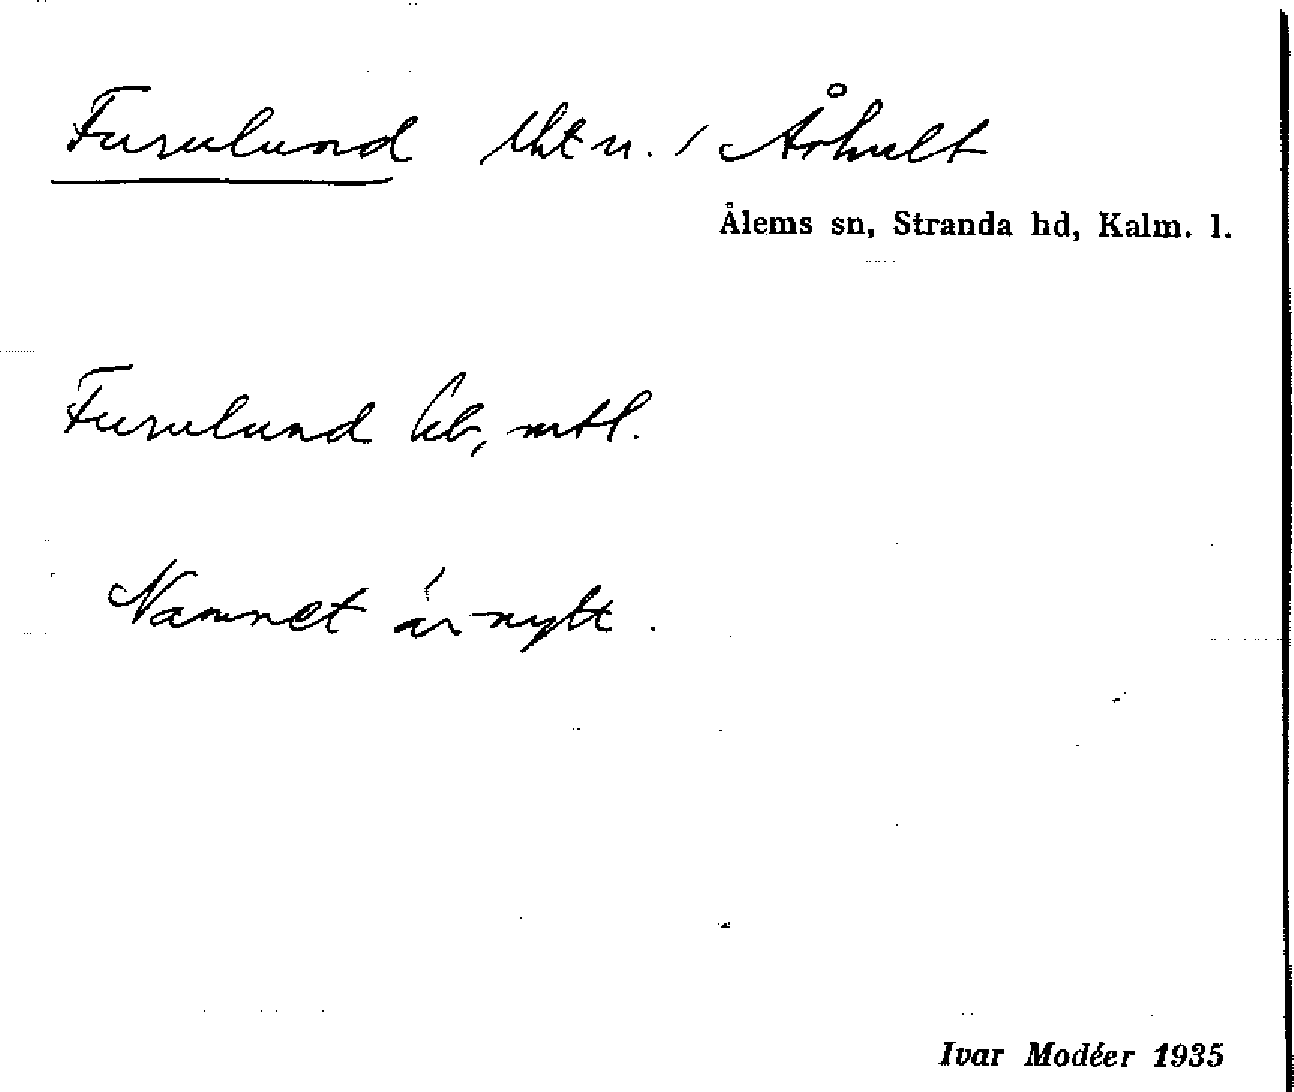 Furulund lht u. / Århult
Ålems sn, Stranda hd, Kalm. l.
Furulund kb, mtl.
Namnet är nytt.
Ivar Modéer 1935